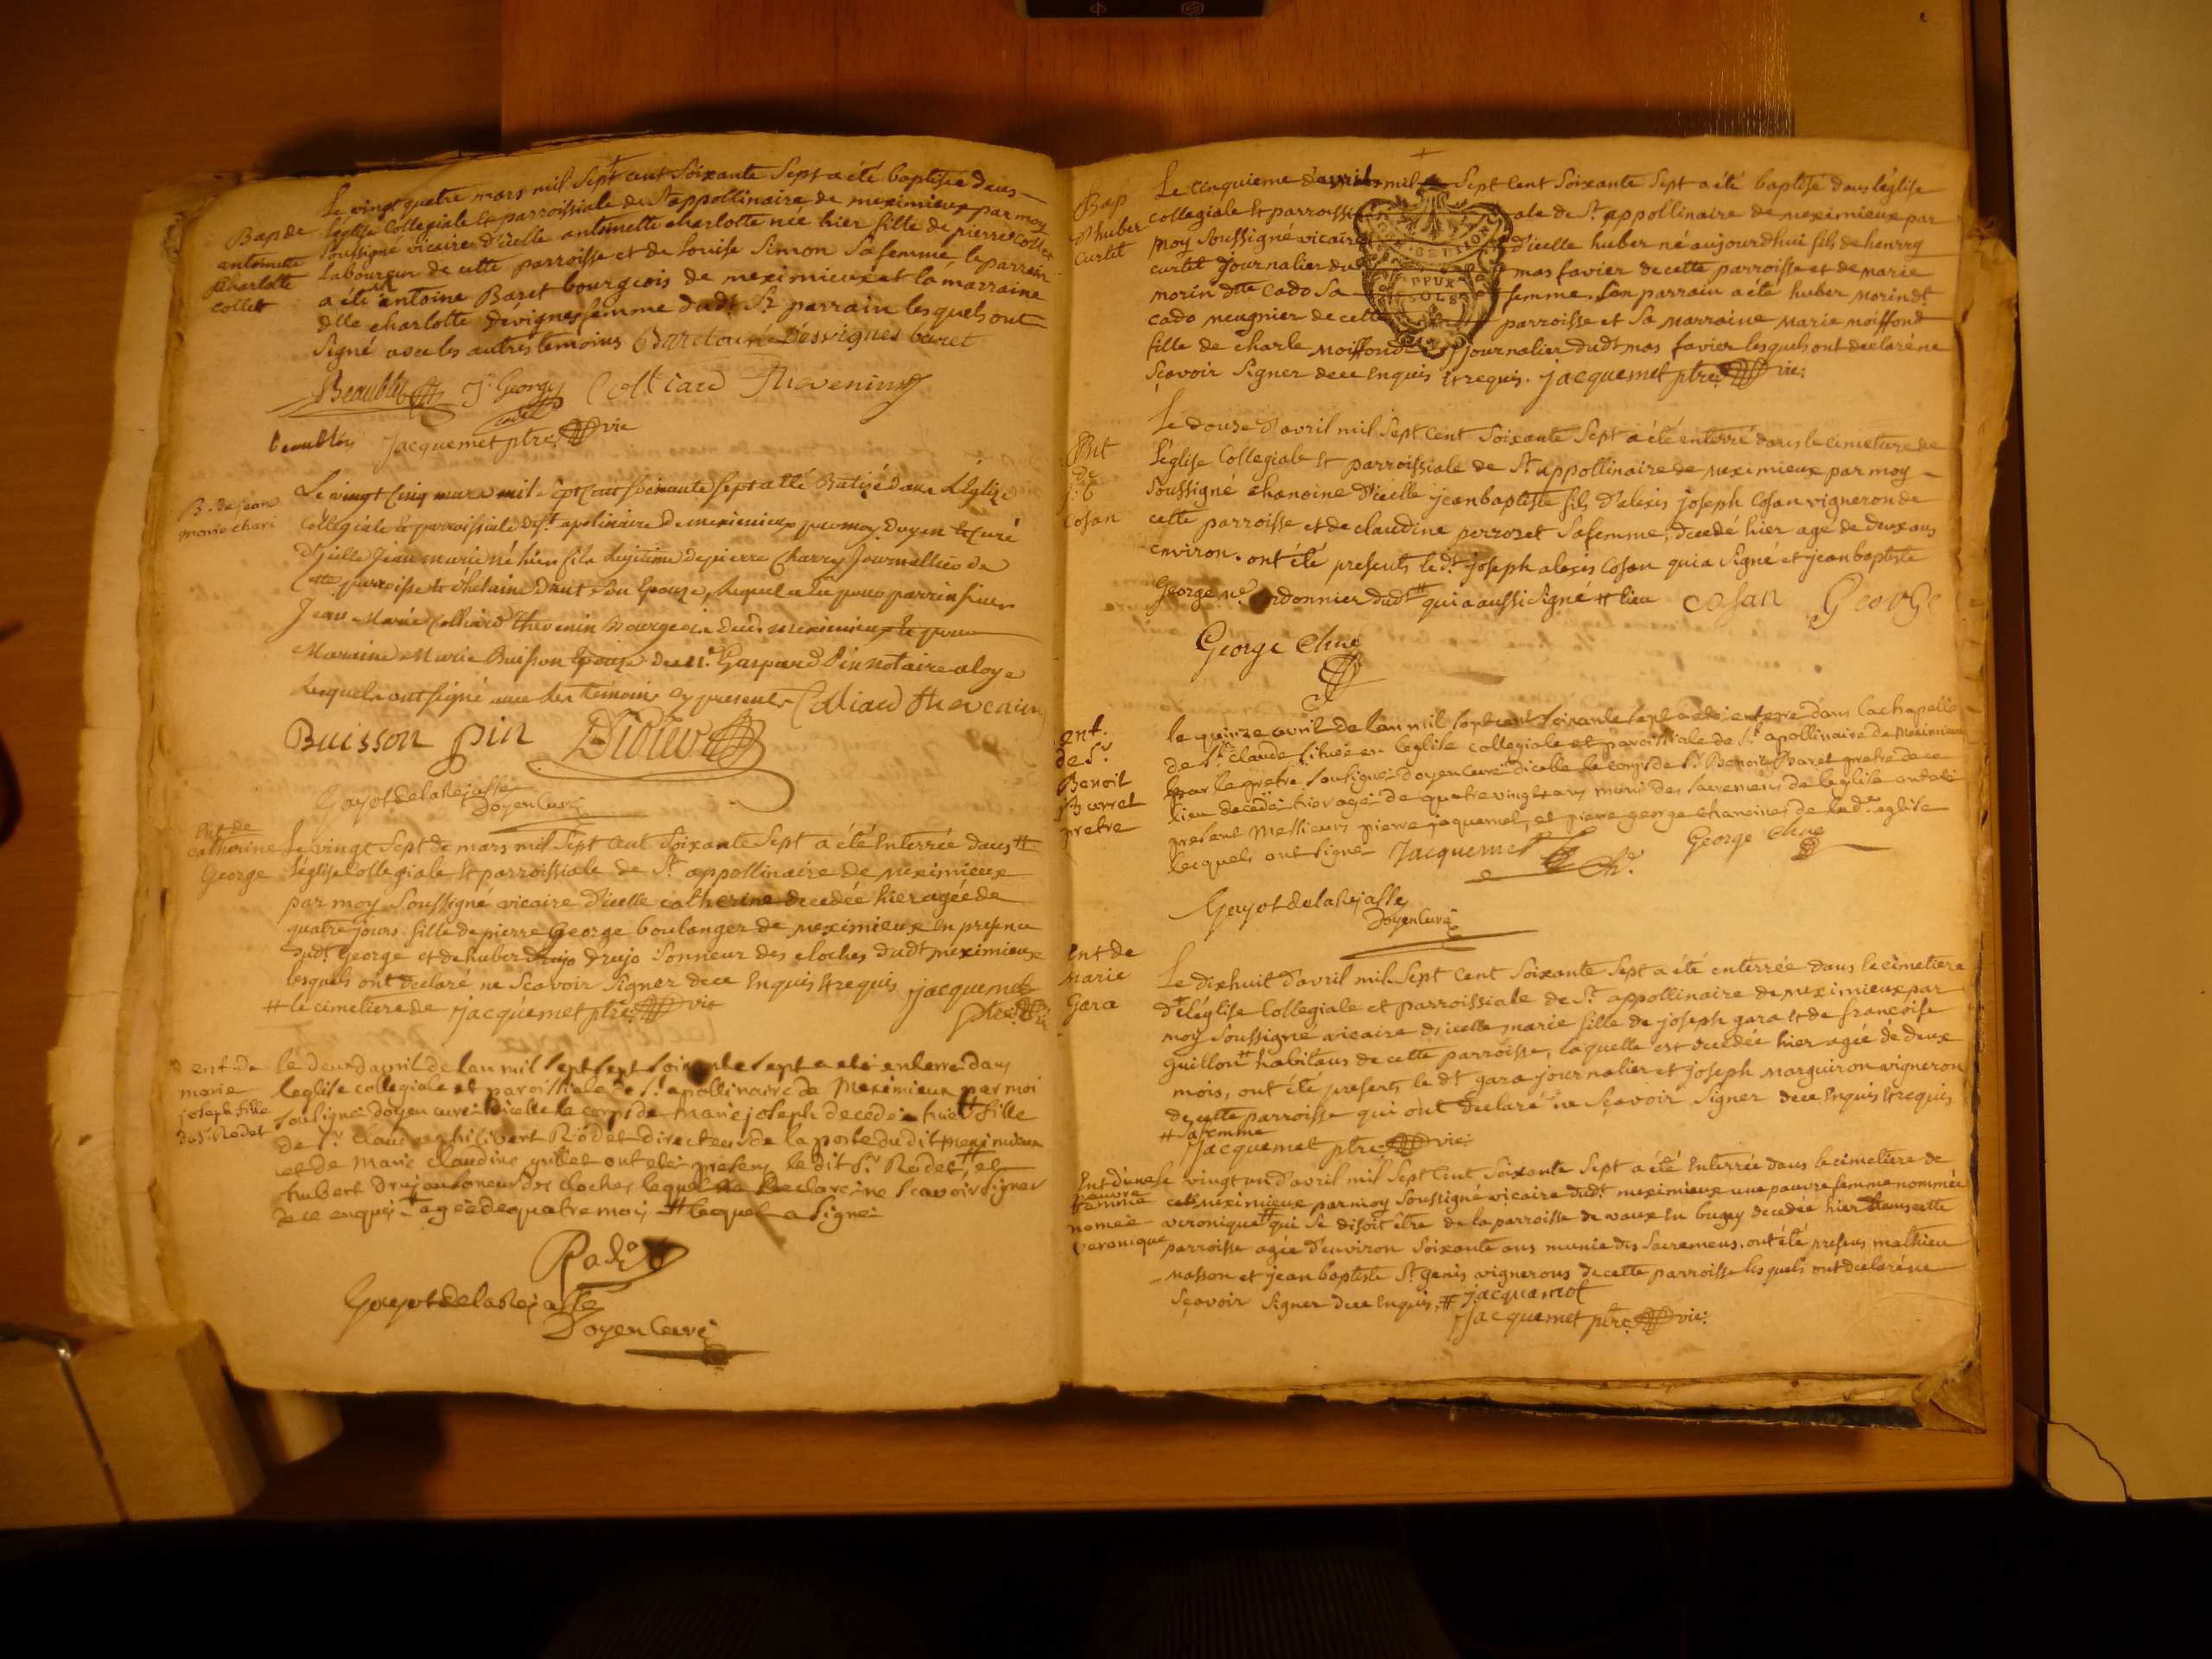 Le vingt quatre mars mil Sept cent Soixante Sept a été baptisée dans
Bap de
antoinette
charlotte
collet
l'église Collegiale et parroissiale de St appollinaire de meximieux par moy
Soussigné vicaire d'icelle antoinette charlotte née hier fille de pierre collet
Laboureur de cette parroisse et de Louise Simon Sa femme, le parrain
a été Sr antoine Baret bourgeois de meximieux et la marraine
dlle charlotte devignes femme dudt Sr parrain lesquels ont
Signé avec les autres temoins Desvignes baret
J. George Colliard Thevenin
cadet
Jacquemet ptre vic
B. de jean
marie chari
Le vingt Cinq mars mil Sept Cent Soixante Sept a été Batizé dans L'Eglize
Collegiale et parroissiale de St apolinaire De meximieux par moy Doyen et Curé
D'icelle Jean marie né hier fils Legitime de pierre Charry Journallier de
Cette parroisse et Son Epouze, Lequel a eu pour parrin Sieur
Jean Marie Colliard Thevenin Bourgeois Dud. meximieux et pour
Maraine Marie Buisson Epouze De Me Gaspard Pin Notaire a loye
Lesquels ont Signé avec Les temoins cy presents Colliard Thevenin
Buisson pin
Guyot de la Rejasse
Doyen Curé
Ent de
catherine
George
Le vingt Sept de mars mil Sept Cent Soixante Sept a été Enterrée dans #
l'église Collegiale Et parroissiale de St appollinaire de Meximieux
par moy Soussigné vicaire d'icelle catherine decedée hier agée de
quatre jours fille de pierre George boulanger de meximieux En presence
dudt George et de huber drujo Sonneur des cloches dudt meximieux
lesquels ont declaré ne Scavoir Signer de ce Enquis Et requis jacquemet
ptre vic
# le cimetiere de jacquemet ptre vic
ent. de
marie
joseph fille
du Sr Rodet
le deux d'avril de lan mil sept sept soixante sept a eté enterré dans
leglise collegiale et paroissiale de St apollinaire de Meximieux par moi
soussigné doyen curé d'icelle le corps de Marie joseph decedée hier # fille
de Sr claude philibert Rodet directeur de la poste dudit meximieux
et de Marie claudine guillet ont eté presens le dit Sr Rodet, # et
hubert drujon soneur des cloches lequel ne declaré ne scavoir signer
de ce enquis # agée de quatre mois # lequel a signé
Rodet
Guyot de la Rejasse
Doyen Curé
Bap
d'huber
curtet
Le Cinquieme d'avril mil Sept Cent Soixante Sept a été baptisé dans l'église
collegiale Et parroissiale de St appollinaire de meximieux par
moy Soussigné vicaire d'icelle huber né aujourdhui fils de henry
curtet journalier du mas favier de cette parroisse et de marie
morin dtte Cado Sa femme. Son parrain a été huber morin dt
cado meugnier de cette parroisse et Sa Marraine Marie moiffond
fille de charle moiffond journalier dudt mas favier lesquels ont declaré ne
Scavoir Signer de ce Enquis Et requis. jacquemet ptre vic:
DEUX
SOLS
Ent
de
j: b
Cosan
Le douze d'avril mil Sept Cent Soixante Sept a été enterré dans le cimetiere de
l'église Collegiale Et parroissiale de St appollinaire de meximieux par moy
Soussigné chanoine d'icelle jean baptiste fils d'alexis joseph Cosan vigneron de
cette parroisse et de claudine perroset Sa femme, decedé hier agé de deux ans
environ. ont été presents le dt joseph alexis Cosan qui a Signé et jean baptiste
George cordonnier dudt # qui a aussi Signé # lieu Cosan George
George Chne
ent.
de Sr
Benoit
Barret
pretre
le quinze avril de lan mil sept cent soixante sept a eté enterré dans la chapelle
de St claude située en leglise collegiale et paroissiale de St apollinaire de Meximieux
par le pretre soussigné doyen curé d'icelle le corps de Sr Benoit Baret pretre de ce
lieu decedé hier agé de quatre vingt ans muni des sacremens de leglise ont été
present Messieurs pierre jaquemet, et pierre george chanoines de ladte eglise
lesquels ont signé Jacquemet ch. George Chne
Guyot de la Rejasse
Doyen Curé
Ent de
Marie
Gara
Le dix huit d'avril mil Sept Cent Soixante Sept a été enterrée dans le cimetiere
de l'église Collegiale et parroissiale de St appollinaire de meximieux par
moy Soussigné vicaire d'icelle marie fille de joseph gara et de françoise
guillon # habitans de cette parroisse, laquelle est decedée hier agée de deux
mois, ont été presents le dt gara journalier et joseph marguiron vigneron
de cette parroisse qui ont declaré ne Sçavoir Signer de ce Enquis Et requis
# Sa femme
Jacquemet ptre vic:
Ent d'une
pauvre
femme
nomeé
veronique
le vingt un d'avril mil Sept Cent Soixante Sept a été Enterrée dans le cimetiere de
meximieux par moy Soussigné vicaire dudt meximieux une pauvre femme nommée
veronique # qui Se disoit être de la parroisse de vaux En bugey decedée hier dans cette
parroisse agée d'environ Soixante ans munie des Sacremens. ont été presens mathieu
masson et jean baptiste St genis vignerons de cette parroisse lesquels ont declaré ne
Sçavoir Signer de ce Enquis. # jacquemot
Jacquemet ptre vic: